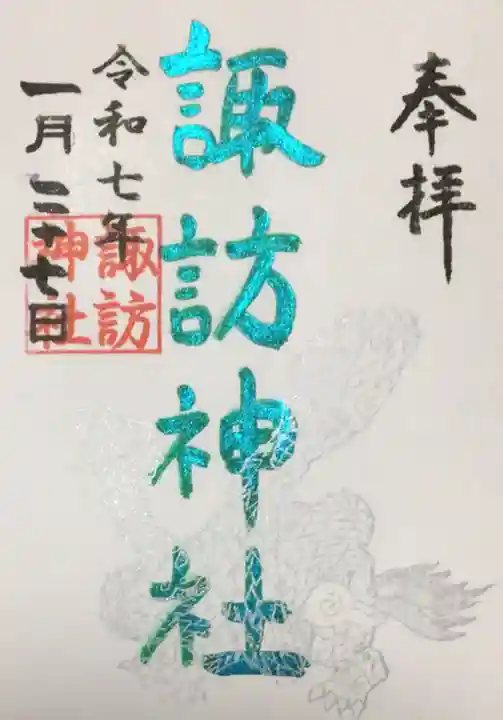 奉拝
諏訪神社
令和七年
一月二十七日
諏訪
神社